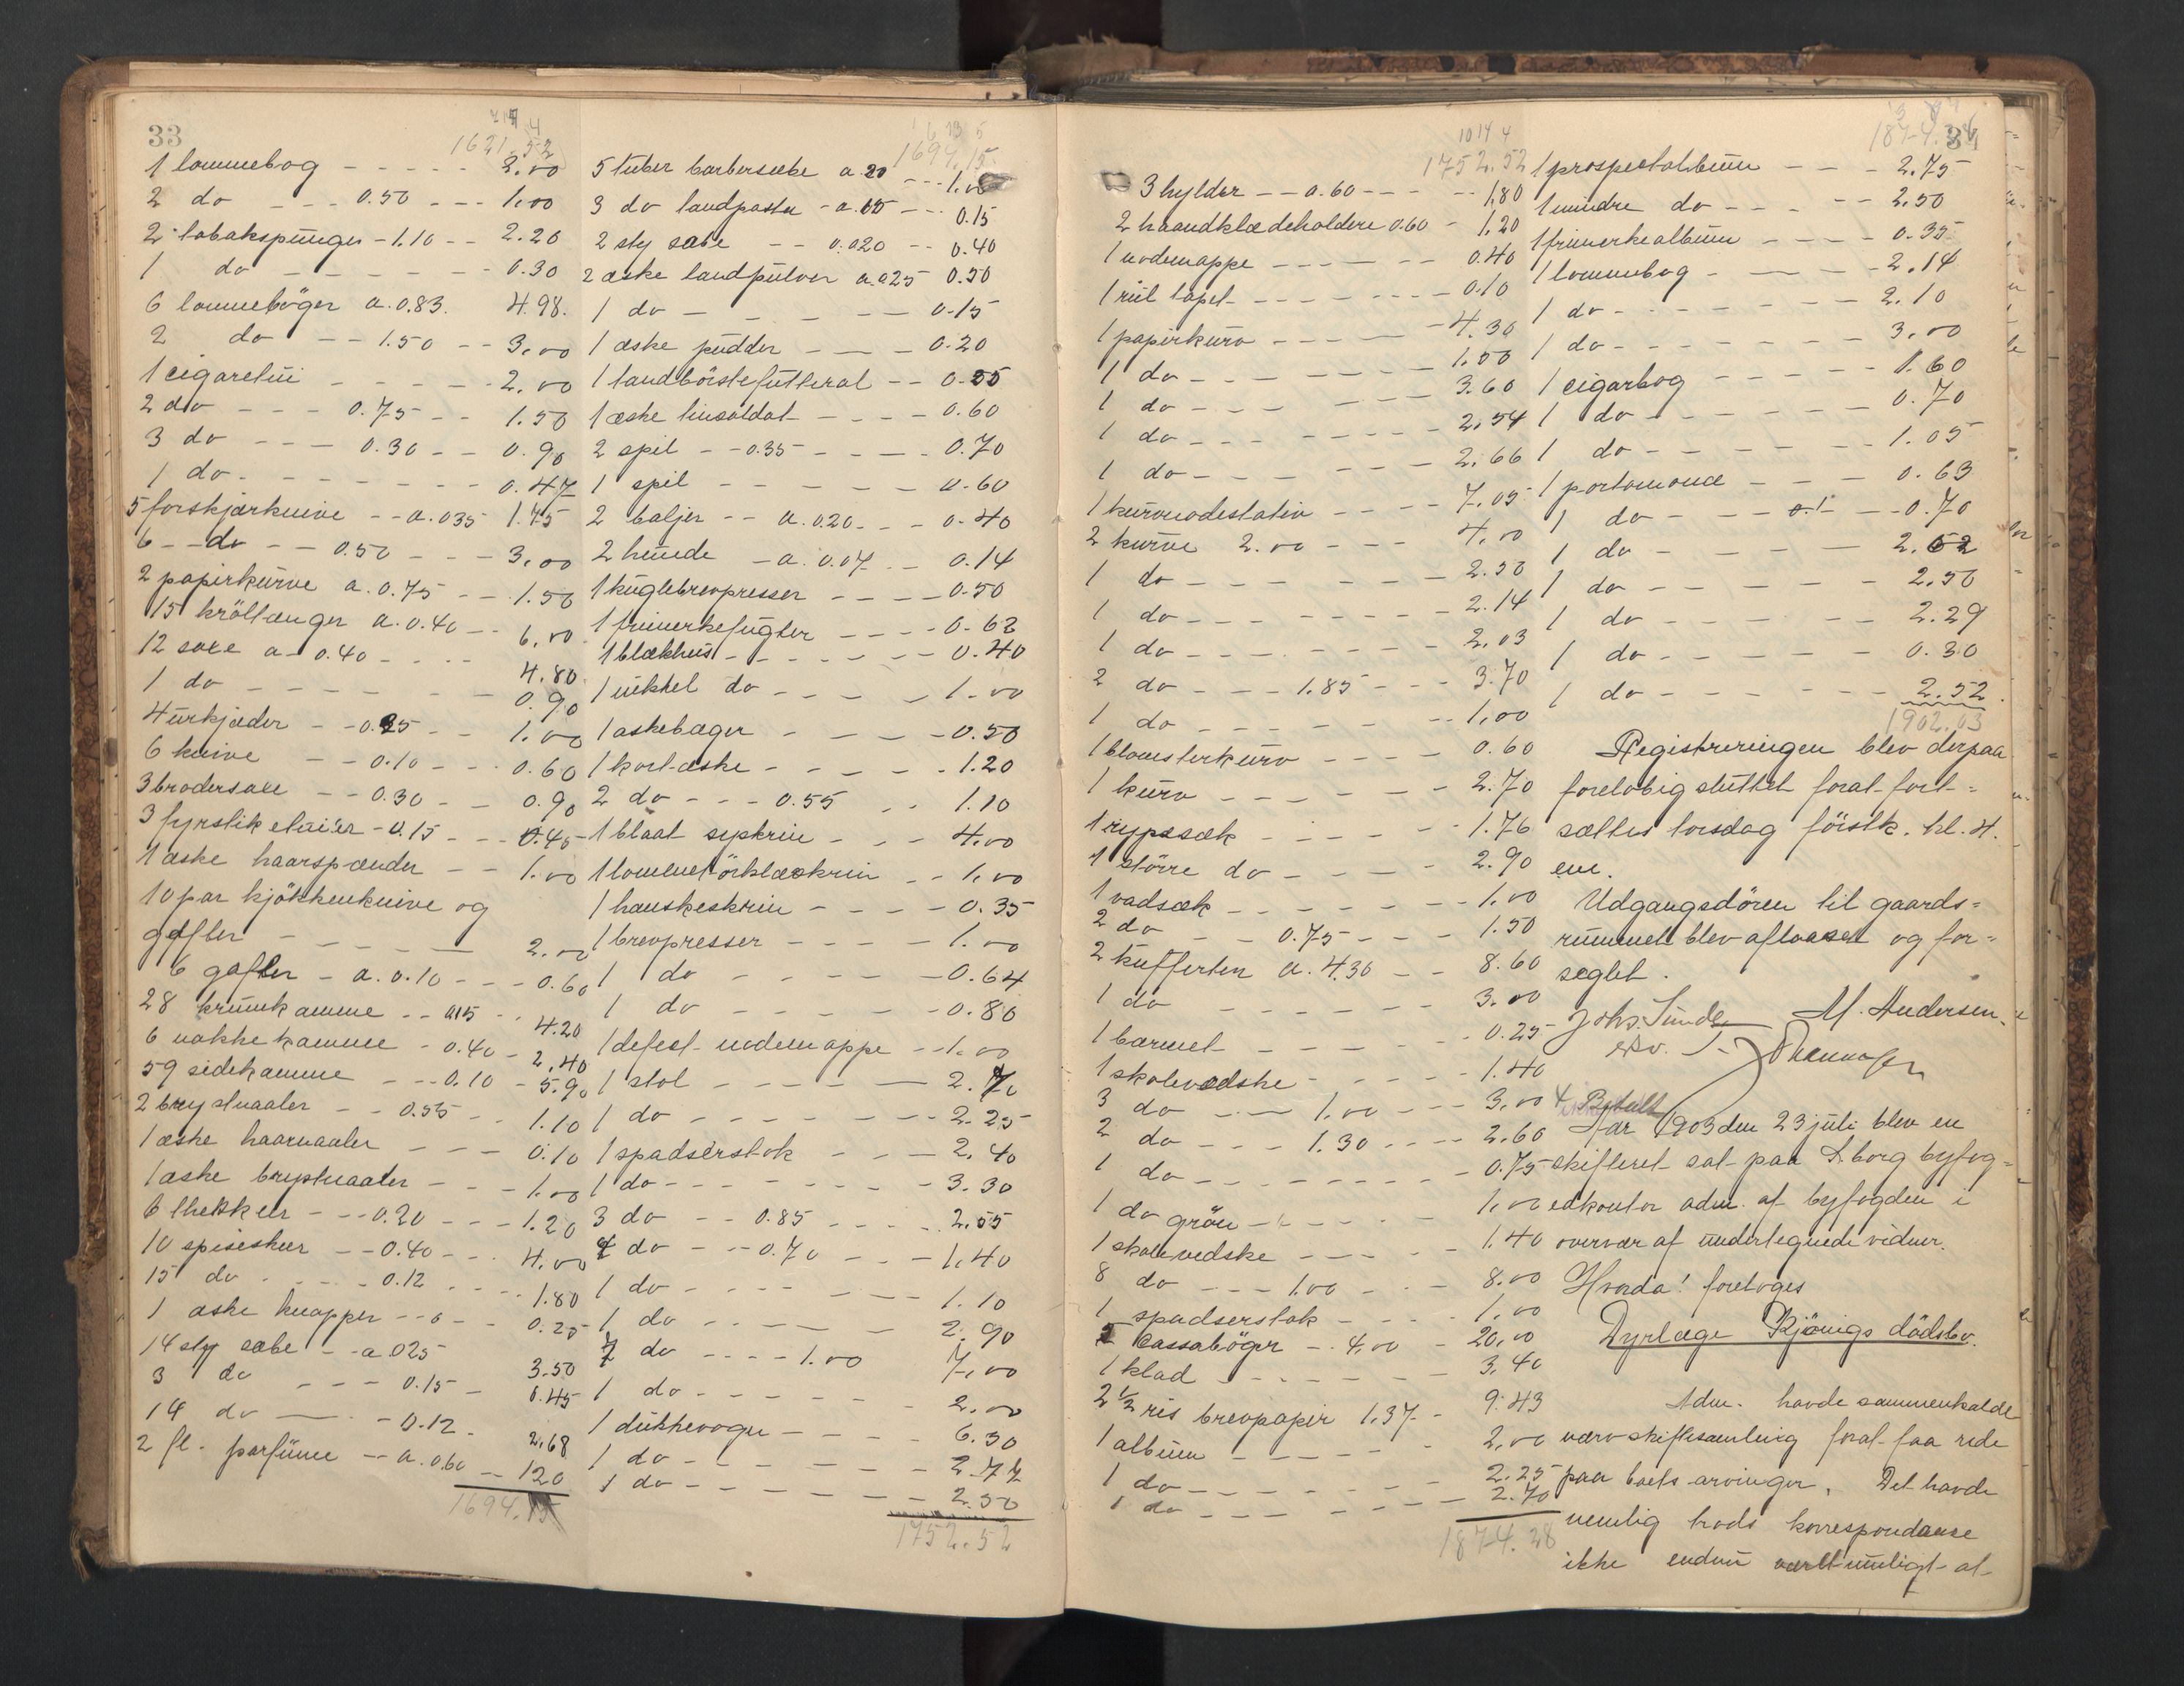 33
1621.52
1 lommebog - - - - - 2.00
2 do - - - 0.50 - - - 1.00
2 tobakspunger - 1.10 - - 2.20
1 do - - - - - - 0.30
6 lommebøger a. 0.83. 4.98.
2 do - - 1.50 - - 3.00
1 cigaretui - - - - - 2.00
2 do - - - 0.75 - - 1.50
3 do - - - 0.30 - - 0.90
1 do - - - - - - - 0.47
5 forskjærknive - - a. 035 1.75
6 - do - - 0.50 - - - 3.00
2 papirkurve a. 0.75 - - 1.50
15 krøltænger a. 0.40 - - 6.00
12 saxe a - 0.40 - - - - 4.80
1 do - - - - - - 0.90
4 urkjæder - - 0.25 - - 1.00
6 knive - - 0.10 - - - 0.60
3 brodersaxe - - 0.30 - - 0.90
3 fyrstiketuier - 0.15 - - - 0.45
1 æske haarspænder - - 1.00
10 par kjøkkenknive og
gafler - - - - - 2.00
6 gafler - a. 0.10 - - - 0.60
28 krumkamme - - 0.15 - - 4.20
6 nakkekamme - 0.40 - 2.40
59 sidekamme - - - 0.10 - 5.90
2 brystnaaler - - 0.55 - - 1.10
1 æske haarnaaler - - - 0.10
1 æske brystnaaler - - - 1.00
6 theskeer - - - 0.20 - - - 1.20
10 spiseskeer - - 0.40 - - - 4.00
15 do - - - - 0.12 - - - - 1.80
1 æske knapper - - - - 0.25
14 sty sæbe - - a 025 3.50
3 do - - - 0.15 - 0.45
14 do - - - 0.12 - 2.68
2 fl. parfume - - a. 060 - - 1.20
1694.15
1694.15
5 tuber barbersæbe a 20 - - - 1.00
3 do tandpasta - a. 05 - - - 0.15
2 sty sæbe - - 0.020 - - 0.40
2 æske tandpulver a. 025 0.50
1 do - - - - - - 0.15
1 æske pudder - - - - 0.20
1 tandbørstefutteral - - 0.55
1 æske tinsoldat - - - - 0.60
2 spil - - 0.35 - - - - - 0.70
1 spil - - - - - - 0.60
2 baljer - - a. 0.20 - - - 0.40
2 hunde - a. 0.07 - - 0.14
1 kuglebrevpresser - - - - 0.50
1 frimerkefugter - - - - 0.63
1 blækhus - - - - - - - 0.40
1 nikkel do - - - - - 1.00
1 askebæger - - - - - 0.50
1 kortæske - - - - - - 1.20
2 do - - - 0.55 - - 1.10
1 blaat syskrin - - - 4.00
1 lommetørklæskrin - - 1.00
1 hanskeskrin - - - - 0.35
1 brevpresser - - - - 1.00
1 do - - - - - 0.64
1 do - - - - - - 0.80
1 defect nodemappe - - 1.00
1 stol - - - - - - 2.70
1 do - - - - - - - 2.25
1 spadserstok - - - - 2.40
1 do - - - - - - - 3.30
3 do - - 0.85 - - - - - 2.55
2 do - - - 0.70 - - - 1.40
1 do - - - - - - - 1.10
1 do - - - - - - 2.90
7 do - - - - 1.00 7.00
1 do - - - - - - 2.00
1 dukkevogn - - - - 6.30
1 do - - - - - - 2.77
1 do - - - - - - - 2.50
1752.52
1752.52
3 hylder - - 0.60 - - - - - 1.80
2 haandklædeholdere 0.60 - 1.20
1 nodemappe - - - - - 0.40
1 rul tapet - - - - - - - 0.10
1 papirkurv - - - - - 4.30
1 do - - - - - - - 1.50
1 do - - - - - - 3.60
1 do - - - - - - - 2.54
1 do - - - - - - 2.66
1 kurvnodestativ - - - - 7.05
2 kurve 2.00 - - - 4.00
1 do - - - - - - - 2.50
1 do - - - - - - - 2.14
1 do - - - - - - - 2.03
2 do - - - - 1.85 - - - 3.70
1 do - - - - - - - 1.00
1 blomsterkurv - - - - 0.60
1 kurv - - - - - - 2.70
1 rypesæk - - - - - 1.76
1 større do - - - - 2.90
1 vadsæk - - - - - - 1.00
2 do - - 0.75 - - - 1.50
2 kufferten a. 4.30 - - 8.60
1 do - - - - - - 3.00
1 barmet - - - - - - 0.25
1 skolevedske - - - - - 1.40
3 do - - - 1.00 - - - 3.00
2 do - - - 1.30 - - - - 2.60
1 do - - - - - - - - 0.75
1 do grøn - - - - - - 1.00
1 skolevedske - - - - - 1.40
8 do - - - 1.00 - - - 8.00
1 spadserstok - - - - 1.00
5 Cassabøger - . 4.00 - 20.00
1 klad - - - - - - - 3.40
2 1/2 ris brevpapir 1.37 - 9.43
1 album - - - - - 2.00
1 do - - - - - - - 2.25
1 do - - - - - - - 2.70
1874.28
34
1 prospectalbum - - - 2.75
1 mindre do - - - - - 2.50
1 frimerkealbum - - - - 0.35
1 lommebog - - - - - 2.14
1 do - - - - - - 2.10
1 do - - - - - - - 3.00
1 cigarbog - - - - - 1.60
1 do - - - - - - 0.70
1 do - - - - - - 1.05
1 portemonæ - - - 0.63
1 do - - - - - - 0.70
1 do - - - - - 2.62
1 do - - - - - - 2.50
1 do - - - - - - 2.29
1 do - - - - - - 0.30
1 do - - - - - - - 2.52
1902.03
Registreringen blev derpaa
foreløbig sluttet forat fort=
sættes torsdag førstk. kl. 4.
em.
Udgangsdøren til gaards=
rummet blev aflaaset og for=
seglet.
M. Andersen
Aar 1903 den 23 juli blev en
skifteret sat paa S.borg byfog=
edkontor adm. af byfogden i
overvær af undertegnede vidner.
Hvorda! foretoges
Dyrlæge Kjønigs dødsbo.
Adm. havde sammenkaldt
nærv skiftesamling forat faa rede
paa boets arvinger. Det havde
nemlig trods korrespondanse
ikke endnu vært muligt at